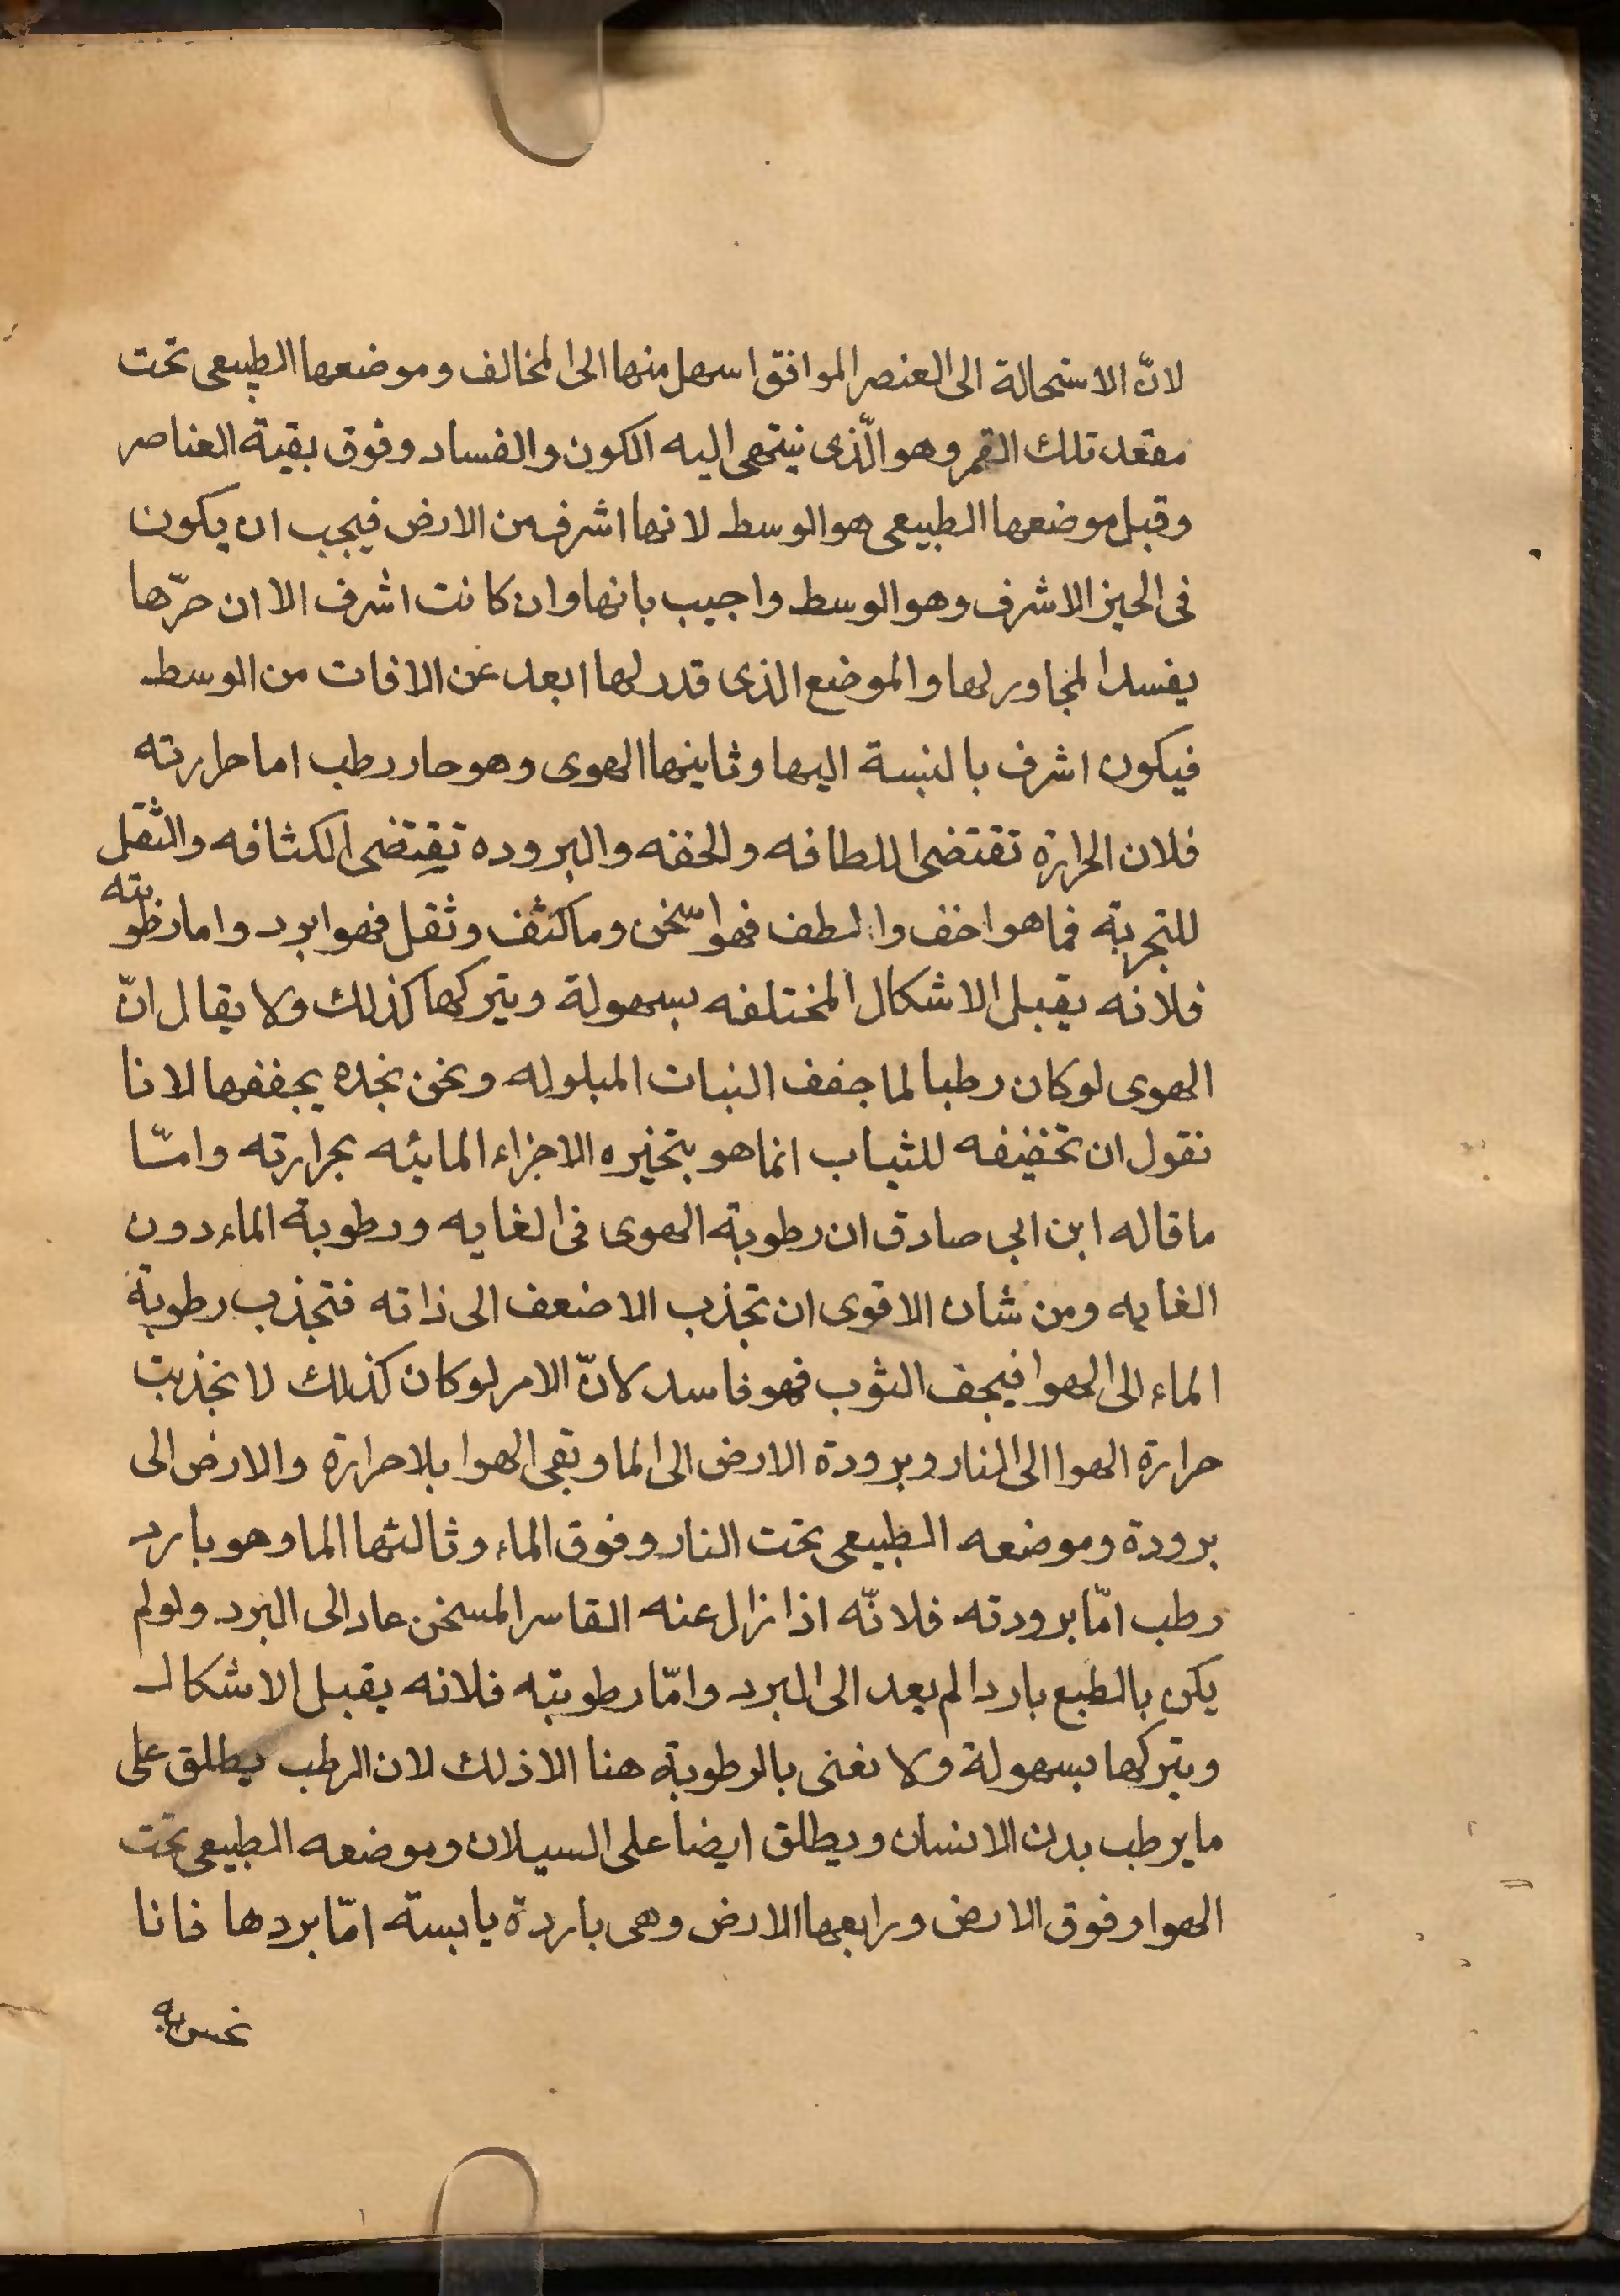 لانّ الاستحالة الى العنصر الموافق اسهل منها الى المخالف وموضعها الطبيعى تحت
مقعد تلك القمر وهو الّذى ينتهى اليه الكون والفساد وفوق بقية العناصر
وقيل موضعها الطبيعى هو الوسط لانها اشرف من الارض فيجب ان يكون
فى الحيز الاشرف وهو الوسط واجيب بانها وان كانت اشرف الا ان حرّها
يفسد المجاور لها والموضع الذى قدر لها ابعد عن الافات من الوسط
فيكون اشرف بالنسبة اليها وثاينها الهوى وهو حار رطب اما حرارته
فلان الحرارة تقتضى اللطافه والخفه والبروده تقتضى الكثافه والثقل
للتجربة فما هو اخف والطف فهو اسخن وما كثف وثقل فهو ابرد واما رطوبته
فلانه يقبل الاشكال المختلفه بسهولة ويتركها كذلك ولا يقال انّ
الهوى لو كان رطبا لما جفف النبات المبلوله ونحن نجده يجففها لانا
نقول ان تخفيفه للثياب انما هو بتخيره الاجزاء المائيه بحرارته وامّا
ما قاله ابن ابي صادق ان رطوبة الهوى فى الغايه ورطوبة الماء دون
الغايه ومن شان الاقوى ان تجذب الاضعف الى ذاته فتجذب رطوبة
الماء الى الهوا فيجف الثوب فهو فاسد لانّ الامر لو كان كذلك لانجذبت
حرارة الهوا الى النار وبرودة الارض الى الما وبقى الهوا بلا حرارة والارض الى
برودة وموضعه الطبيعى تحت النار وفوق الماء وثالثها الما وهو بارد
رطب امّا برودته فلانّه اذا زال عنه القاسر المسخن عاد الى البرد ولو لم
يكن بالطبع باردا لم يعد الى البرد وامّا رطوبته فلانه يقبل الاشكال
ويتركها بسهولة ولا نعنى بالرطوبة هنا الا ذلك لان الرطب يطلق على
ما يرطب بدن الانسان ويطلق ايضا على السيلان وموضعه الطبيعى تحت
الهوا وفوق الارض ورابعها الارض وهى باردة يابسة امّا بردها فانا
نحس به